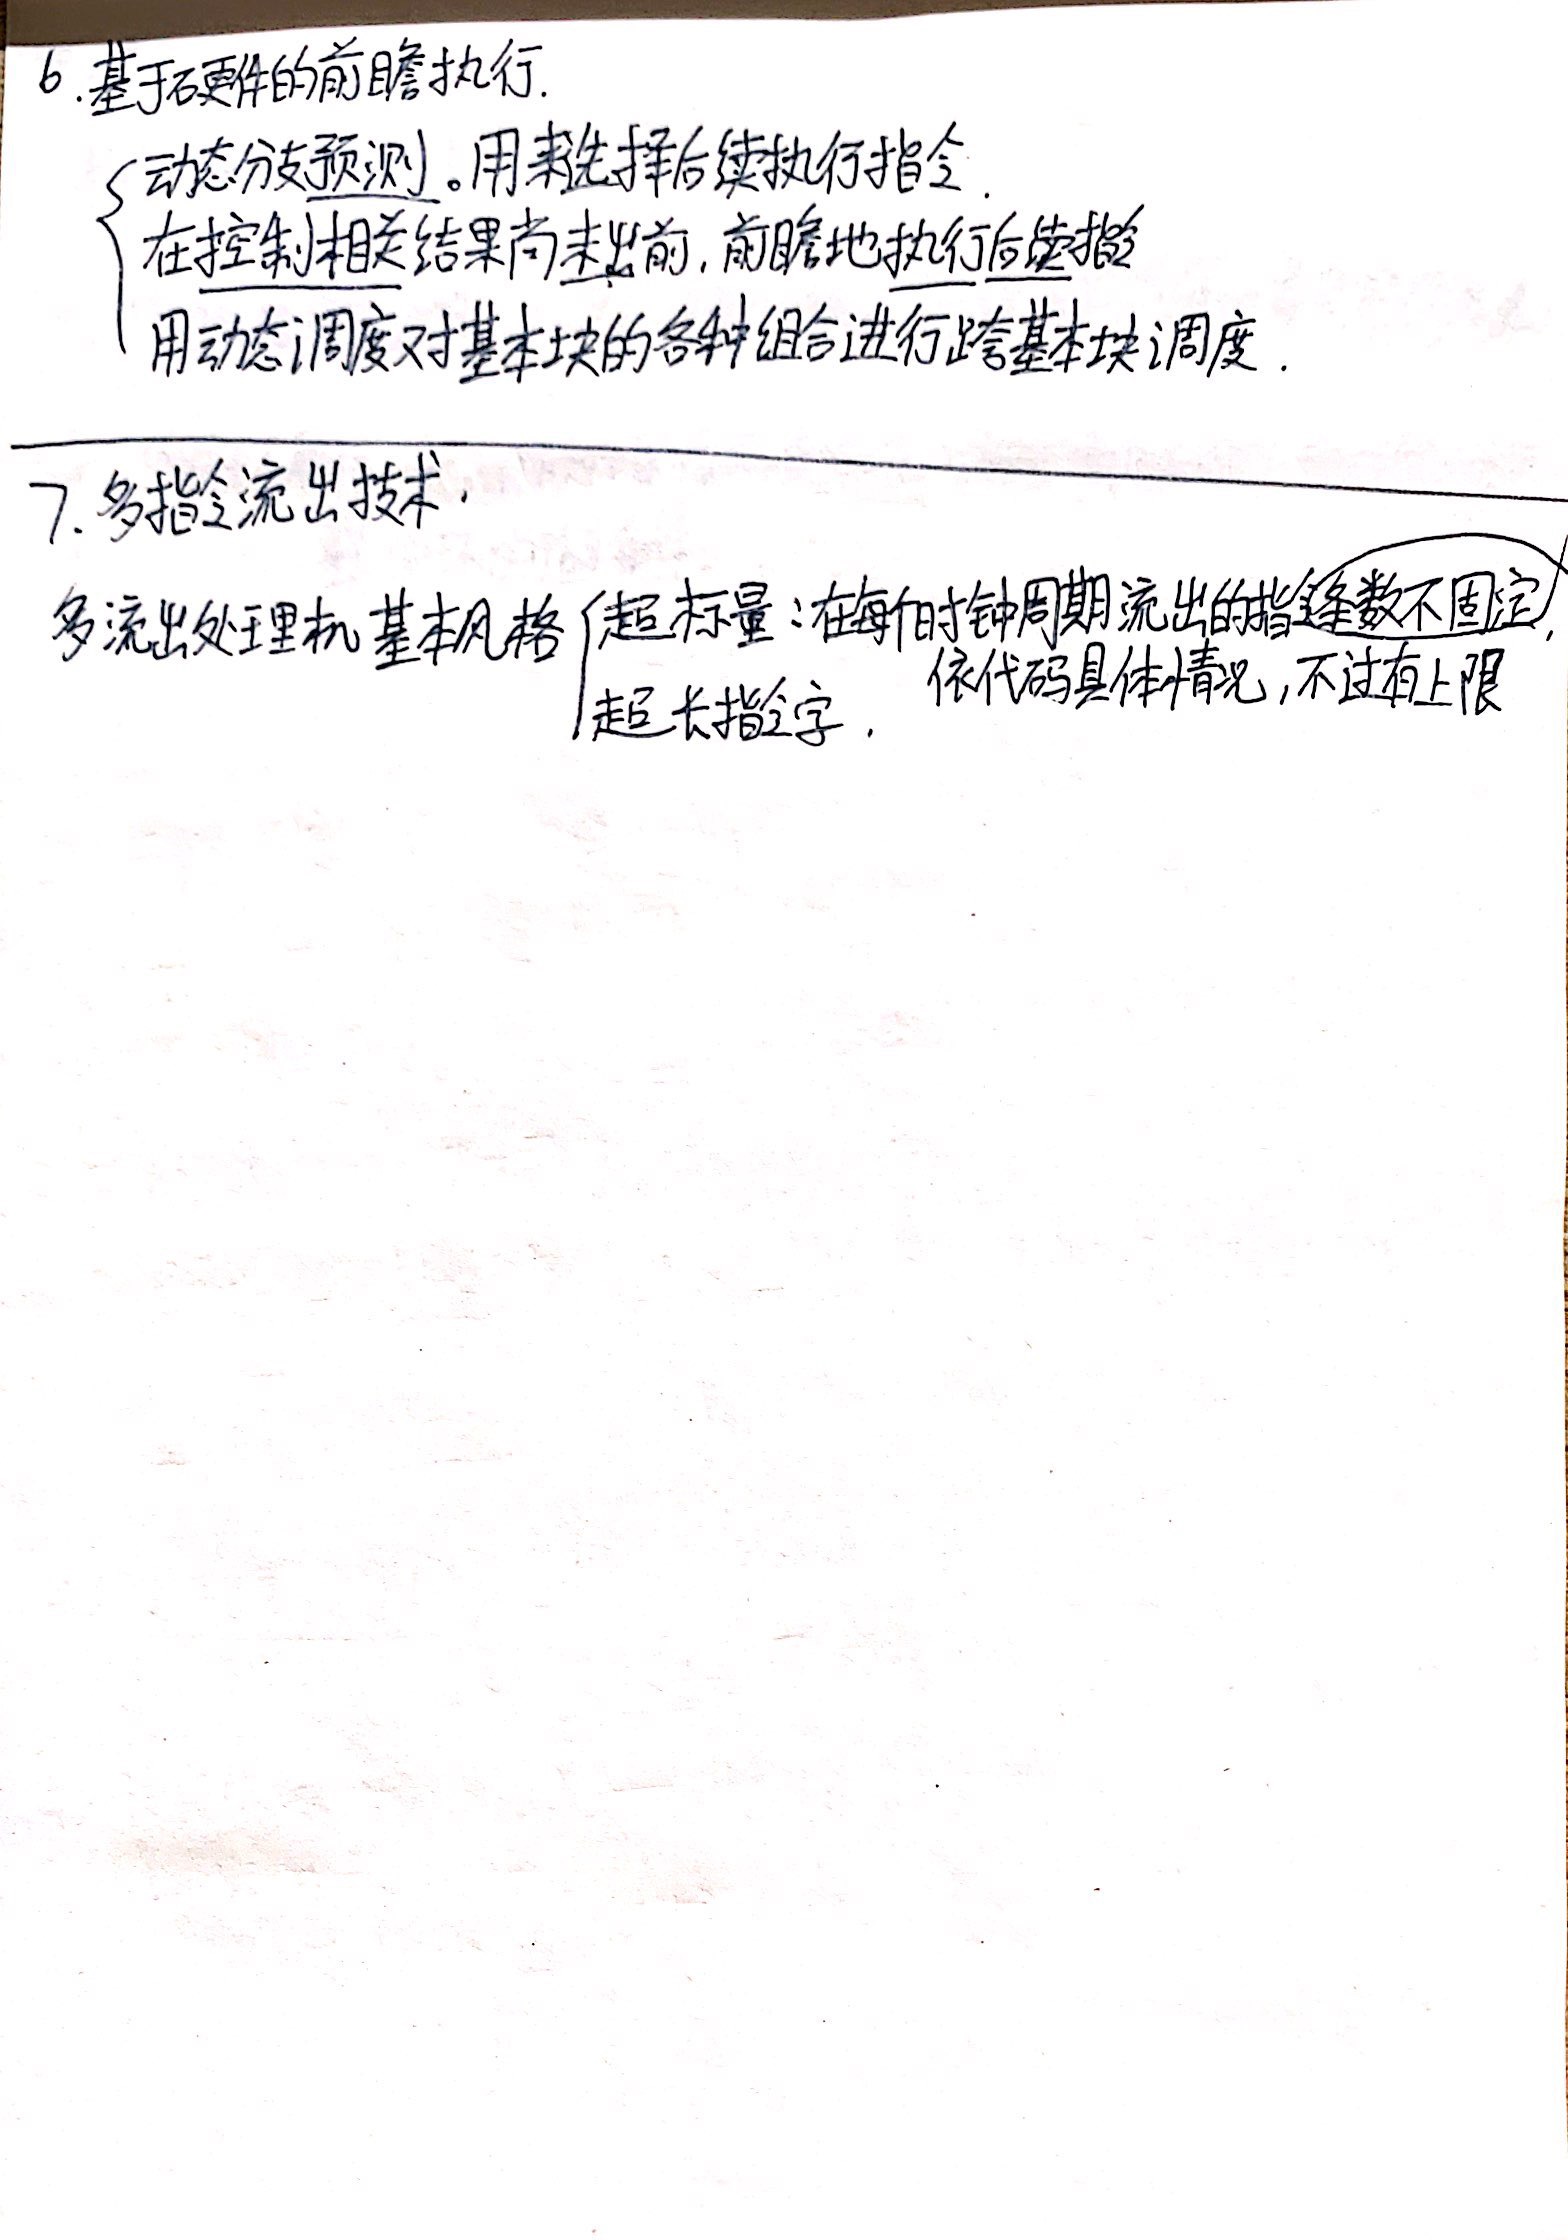 6.基于硬件的前瞻执行.
动态分支预测。用来选择后续执行指令.
在控制相关结果尚未出前,前瞻地执行后续指令
用动态调度对基本块的各种组合进行跨基本块调度.
7.多指令流出技术.
多流出处理机基本风格
超标量:在每个时钟周期流出的指令条数不固定,
依代码具体情况,不过有上限
超长指令字.